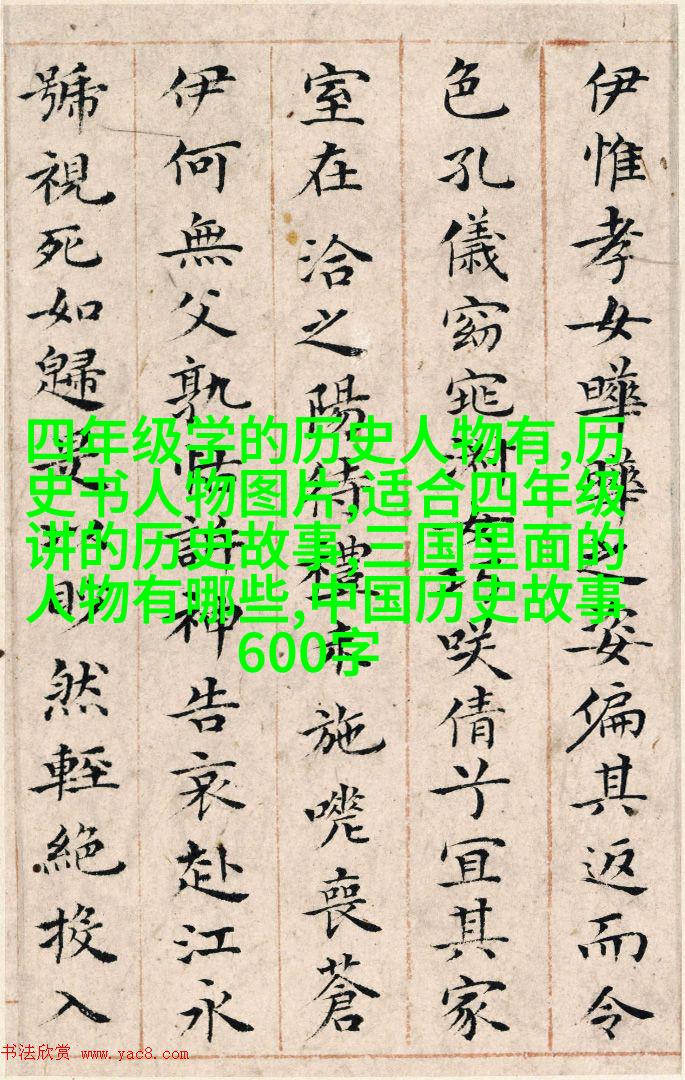 伊惟孝女曄曄之姿偏其返而令
色孔儀窈窕淑女巧咲倩兮宜其家
室在洽之陽待禮未施嗟喪蒼
伊何無父孰怙訴神告哀赴江永
號視死如歸是以眇然輕絕投入
四年级学的历史人物有,历
史书人物图片,适合四年级
讲的历史故事,三国里面的
人物有哪些,中国历史故事
600字
书法欣赏 www.yac8.com